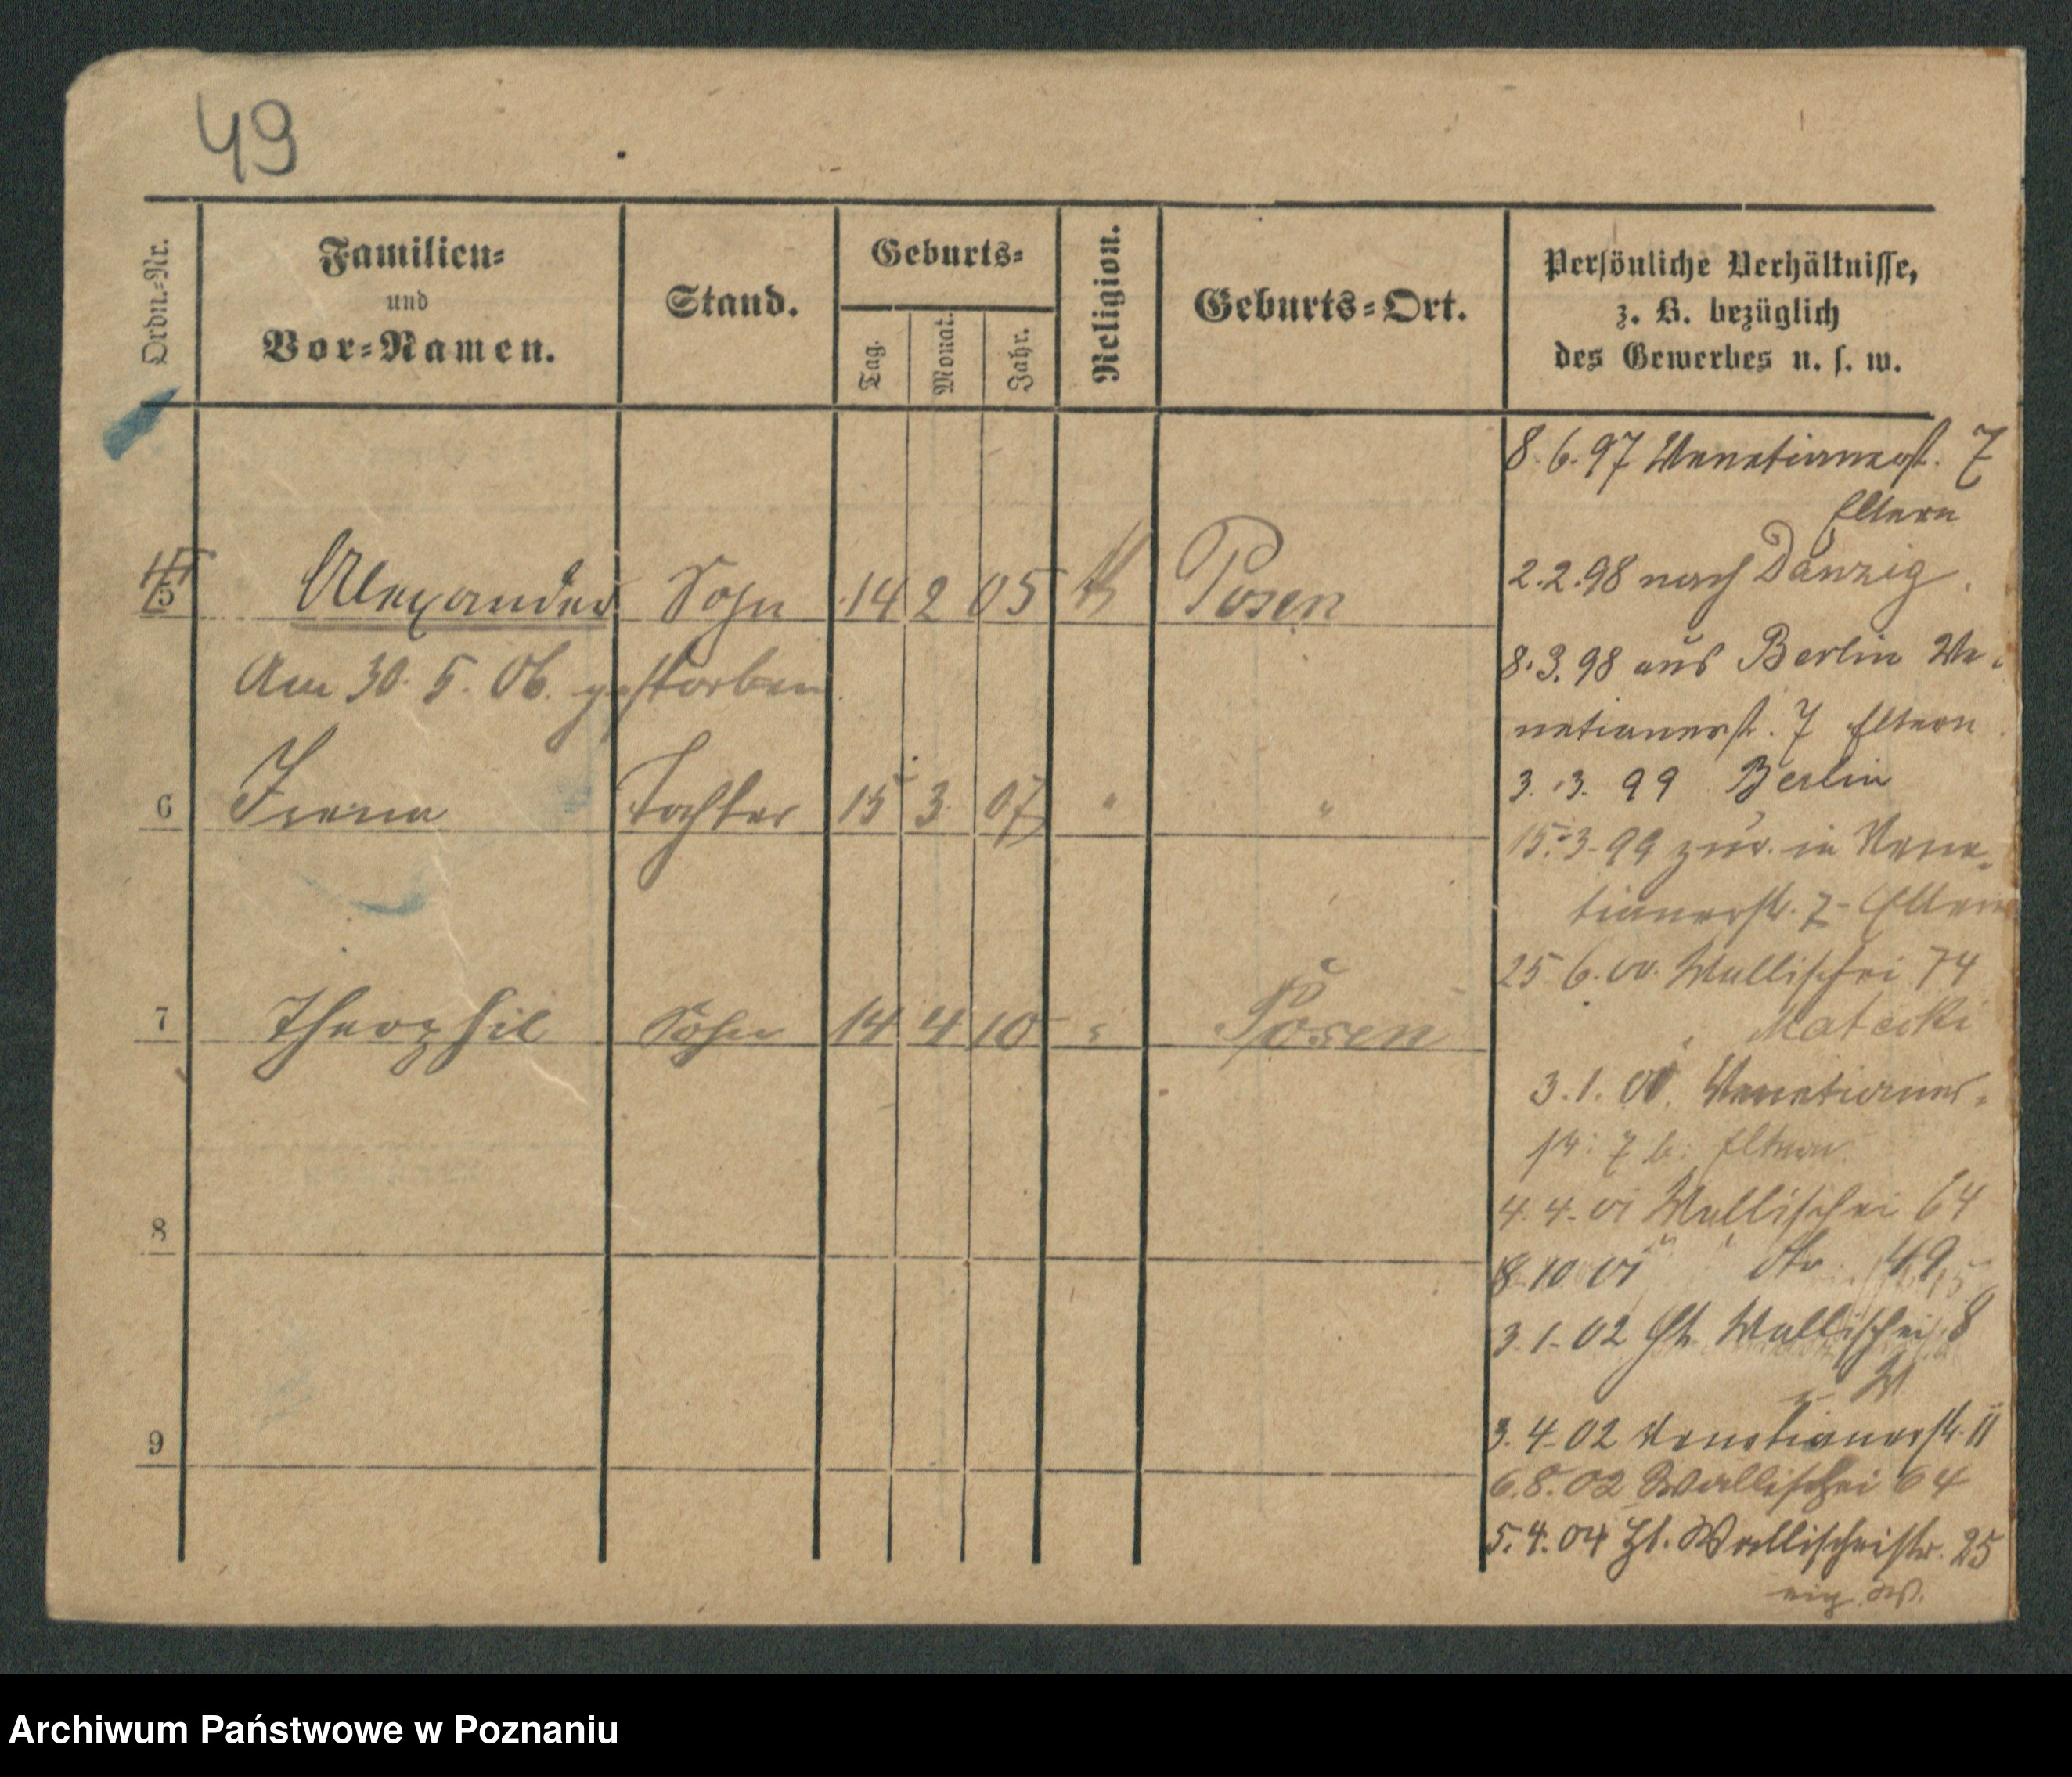 49
Ordn.-Nr.
Familien-
und
Vor-Namen.
Stand.
Geburts-
Tag.
Monat.
Jahr.
Religion.
Geburts-Ort.
Persönliche Verhältnisse,
z. B. bezüglich
des Gewerbes u. s. w.
5 Alexander Sohn 14 2 05 Posen
Am 30. 5. 06. gestorben.
6 Irena Tochter 15 3. 07 " "
7 Theophil Sohn 14 4 10 Posen
8
9
8. 6. 97 Venetianerst. 7
Eltern
2. 2. 98 nach Danzig.
8. 3. 98 aus Berlin Ve-
netianerstr. 7 Eltern
3. 3. 99 Berlin
15. 3. 99 zur. in Vene-
tianerstr. 7 - Eltern
25 6. 00. Wallischei 74
Matecki
3. 1. Venetianer-
str. 7 b. Eltern.
4. 4. 01 Wallischei 64
8. 10 01 49
3. 1. 02 Wallischei 8
3. 4. 02 Venetianerstr. 11
6. 8. 02 Wallischei 64
5. 4. 04 Wallischeistr. 25
eig. W.
Archiwum Państwowe w Poznaniu